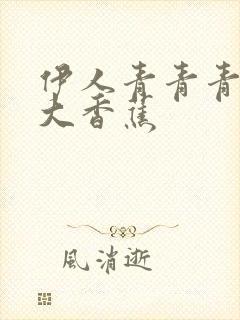 伊人青青青
大香蕉
風消逝